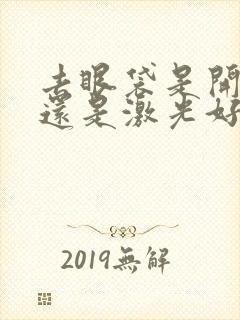 去眼袋是開
還是激光好
2019無解